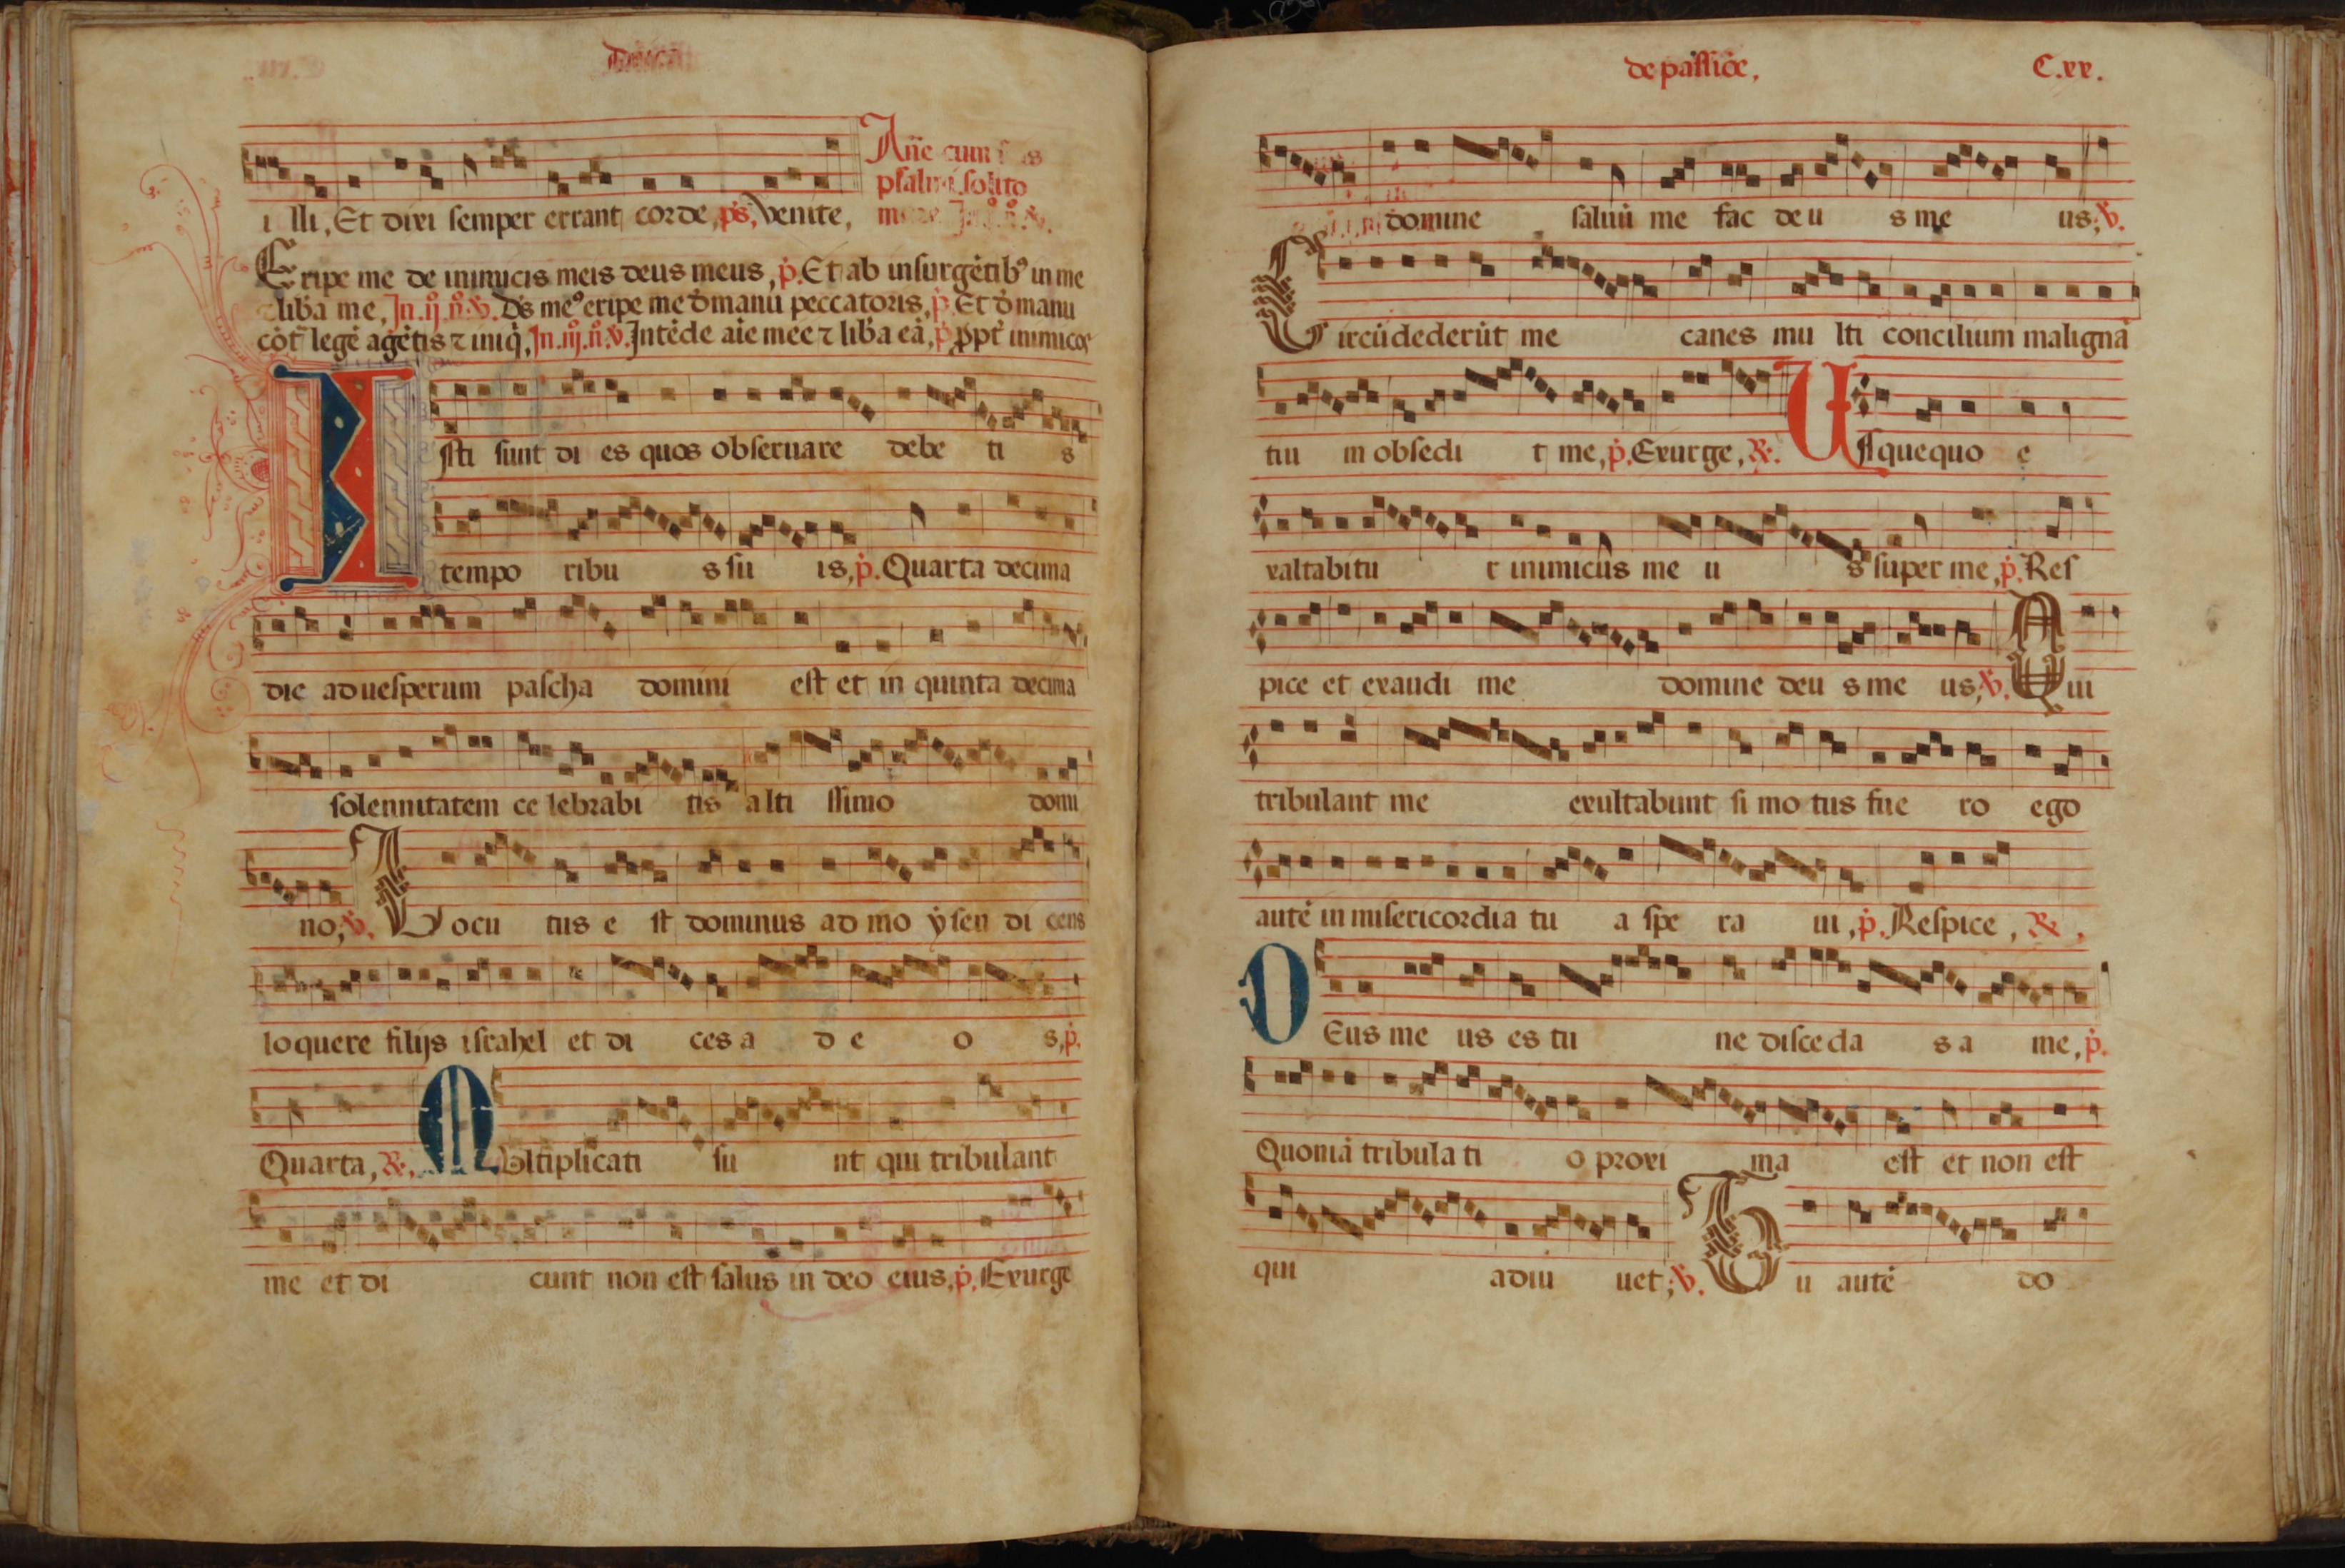 Dñica
i lli, Et dixi semper errant corde, p̄s, Venite,
Añe cum
psalmi solito
Eripe me de inimicis meis deus meus, p̄. Et ab insurgētibꝰ in me
⁊ liba me, Jn .ij. n̊. v̄. Ds̄ meꝰ eripe me d̄ manu peccatoris, p̄. Et d̄ manu
cōt̄ legē agētis ⁊ iniq̄, Jn .iij. n̊. v̄. Jntēde aīe mee ⁊ liba eā, p̄. ꝓpt̄ inimicos
Isti sunt di es quos obseruare debe ti s
tempo ribu s su is, p̄. Quarta decima
die ad uesperum pascha domini est et in quinta decima
solennitatem ce lebrabi tis alti ssimo domi
no; v̄. Locu tus e st dominus ad mo ysen di cens
loquere filijs israhel et di ces a d e o s, p̄.
Quarta, ⁊c. Multiplicati su nt qui tribulant
me et di cunt non est salus in deo eius, p̄. Exurge
de passiōe, C.xx.
domine saluū me fac deu s me us; v̄.
Circūdederūt me canes mu lti concilium malignā
tiu m obsedi t me, p̄. Exurge, ⁊c. Usquequo e
xaltabitu r inimicus me u s super me, p̄. Res
pice et exaudi me domine deu s me us; v̄. Qui
tribulant me exultabunt si mo tus fue ro ego
autē in misericordia tu a spe ra ui, p̄. Respice, ⁊c.
Deus me us es tu ne disceda s a me, p̄.
Quoniā tribula ti o proxi ma est et non est
qui adiu uet; v̄. Tu autē do